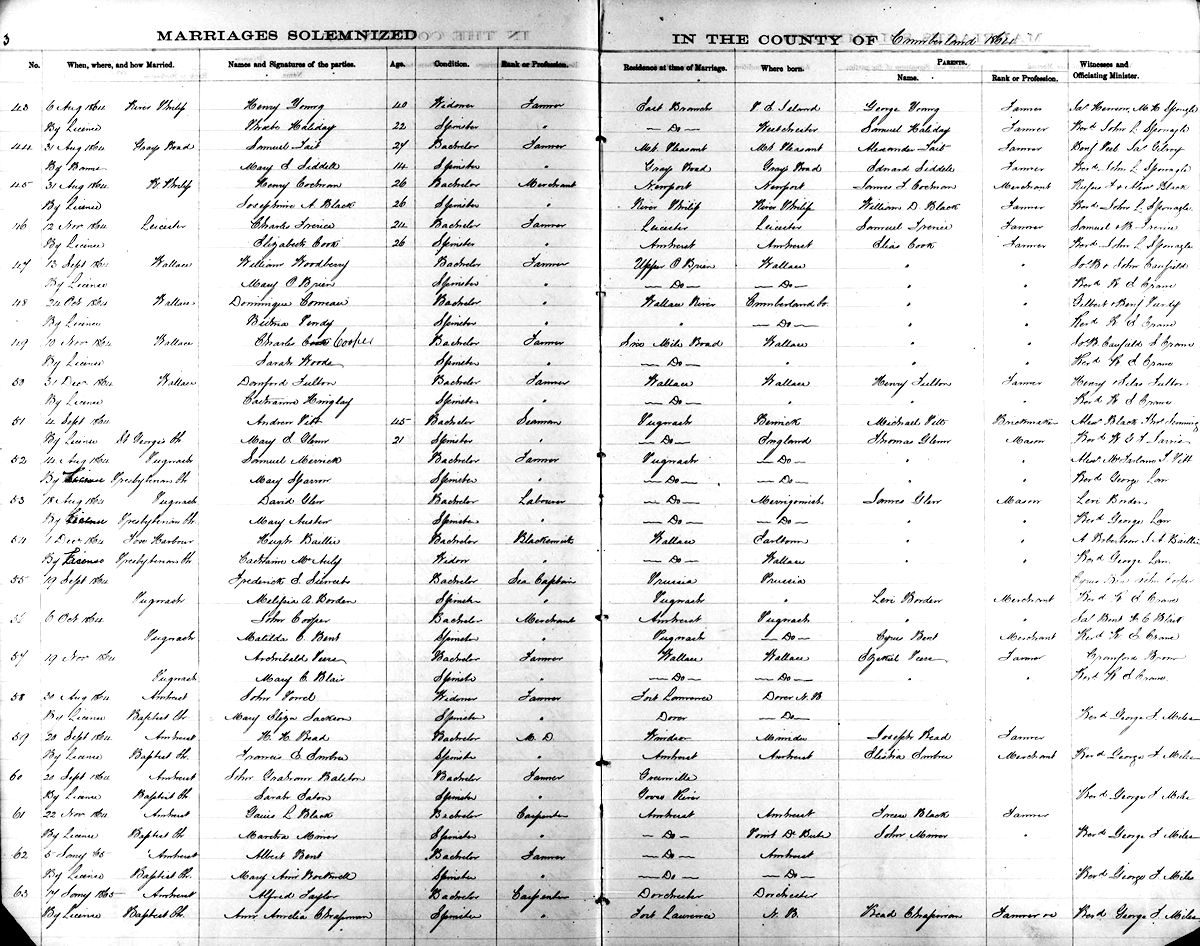 3 MARRIAGES SOLEMNIZED IN THE COUNTY OF Cumberland 1864
No. When, where, and how Married. Names and Signatures of the parties. Age. Condition. Rank or Profession. Residence at time of Marriage. Where born. PARENTS. Name. Rank or Profession. Witnesses and Officiating Minister.
43 6 Aug 1864 River Philip Henry Young 40 Widower Farmer East Branch P. E. Island George Young Farmer
By Licence Phoebe Haliday 22 Spinster " — Do — Westchester Samuel Haliday Farmer Revd John L Sponagle
44 31 Aug 1864 Grays Road Samuel Tait 27 Bachelor Farmer Mt Pleasant Mt Pleasant Alexander Tait Farmer
By Banns Mary E Siddell 14 Spinster " Grays Road Grays Road Edward Siddell Farmer Revd John L Sponagle
45 31 Aug 1864 R Philip Henry Cochran 26 Bachelor Merchant Newport Newport James T Cochran Merchant Rufus F & Alex Black
By Licence Josephine A. Black 26 Spinster " River Philip River Philip William D. Black Farmer Revd John L Sponagle
46 12 Nov 1864 Leicester Charles Irence 24 Bachelor Farmer Leicester Leicester Samuel Irence Farmer Samuel B. Irence
By Licence Elizabeth Cook 26 Spinster " Amherst Amherst Elias Cook Farmer Revd John L Sponagle
47 13 Sept 1864 Wallace William Woodberry Bachelor Farmer Upper O Brien Wallace " " John Canfield
By Licence Mary O Brien Spinster " — Do — — Do — " " Revd R. E Crane
48 24 Oct 1864 Wallace Dominique Comeau Bachelor " Wallace River Cumberland Co " " Gilbert Benj Purdy
By Licence Purdy Spinster " " — Do — " " Revd R. E Crane
49 10 Nov 1864 Wallace Charles Cooper Bachelor Farmer Six Mile Road Wallace " " Canfield E Crane
By Licence Sarah Woods Spinster " — Do — " " " Revd R. E Crane
50 31 Dec 1864 Wallace Danford Fulton Bachelor Farmer Wallace Wallace Henry Fulton Farmer Henry Silas Fulton
By Licence Catherine Spinster " — Do — " " " Revd R E Crane
51 4 Sept 1864 Andrew Pitt 45 Bachelor Seaman Pugwash Michael Pitt Brickmaker Alex Black
By Licence St Georges Ch Mary E Glenn 21 Spinster " — Do — England Thomas Glenn Mason Revd
52 14 Aug 1864 Pugwash Samuel Merrick Bachelor Farmer Pugwash — Do — " " Alex McFarlane Pitt
By Licence Presbyterian Ch Mary Sparrow Spinster " — Do — — Do — " " Revd George Law
53 18 Aug 1864 Pugwash David Glen Bachelor Labourer — Do — Merrigomish James Glen Mason Levi Borden
By Licence Presbyterian Ch Mary Auster Spinster " — Do — — Do — " " Revd George Law
54 1 Decr 1864 Fox Harbour Hugh Baillie Bachelor Blacksmith Wallace Earltown " " A Robertson
By Licence Presbyterian Ch Catherine Widow " — Do — Wallace " " Revd George Law
55 19 Sept 1864 Frederick E Bachelor Sea Captain Prussia Prussia
Pugwash Melissia A. Borden Spinster " Pugwash " Levi Borden Merchant Revd R E Crane
56 6 Oct 1864 John Cooper Bachelor Merchant Amherst Pugwash " "
Pugwash Matilda C. Bent Spinster " Pugwash — Do — Cyrus Bent Merchant Revd R E Crane
57 19 Nov 1864 Archibald Peers Bachelor Farmer Wallace Wallace Ezekiel Peers Farmer Crawford Brown
Pugwash Mary C. Blair Spinster " — Do — — Do — " " Revd R E Crane
58 30 Aug 1864 Amherst John Powel Widower Farmer Fort Lawrence Dover N. B
By Licence Baptist Ch. Mary Eliza Jackson Spinster " Dover — Do — Revd George F. Miles
59 28 Sept 1864 Amherst H. H. Read Bachelor M. D. Windsor Joseph Read Farmer
By Licence Baptist Ch. Francis E. Embree Spinster " Amherst Amherst Elisha Embree Merchant Revd George F. Miles
60 20 Sept 1864 Amherst John Grahame Ralston Bachelor Farmer Greenville
By Licence Baptist Ch Sarah Eaton Spinster " Goose River Revd George F. Miles
61 22 Nov 1864 Amherst Gaius L Black Bachelor Carpenter Amherst Amherst Black Farmer
By Licence Baptist Ch Martha Minor Spinster " — Do — Point De Bute John Minor " Revd George F. Miles
62 5 Jany 65 Amherst Albert Bent Bachelor Farmer — Do — Amherst
By Licence Baptist Ch Mary Ann Rockwell Spinster " — Do — — Do — Revd George F Miles
63 7 Jany 1865 Amherst Alfred Taylor Bachelor Carpenter Dorchester Dorchester
By Licence Baptist Ch. Ann Amelia Chapman Spinster " Fort Lawrence N. B. Read Chapman Farmer Revd George F. Miles